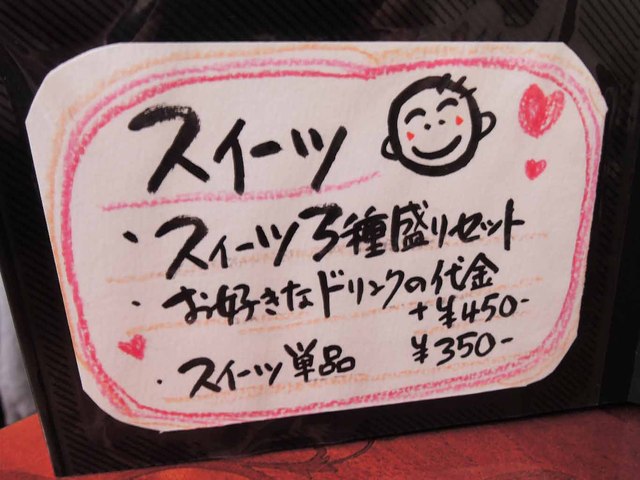 スイーツ
・スイーツ3種盛りセット
・お好きなドリンクの代金
+¥450-
・スイーツ単品 ¥350-